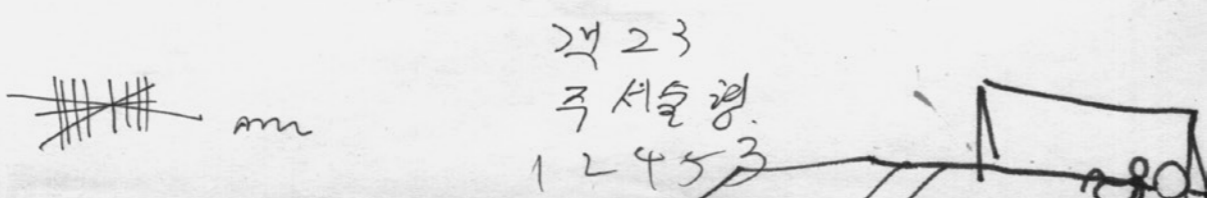 객 23
주 서술형.
1 2 4 5 3